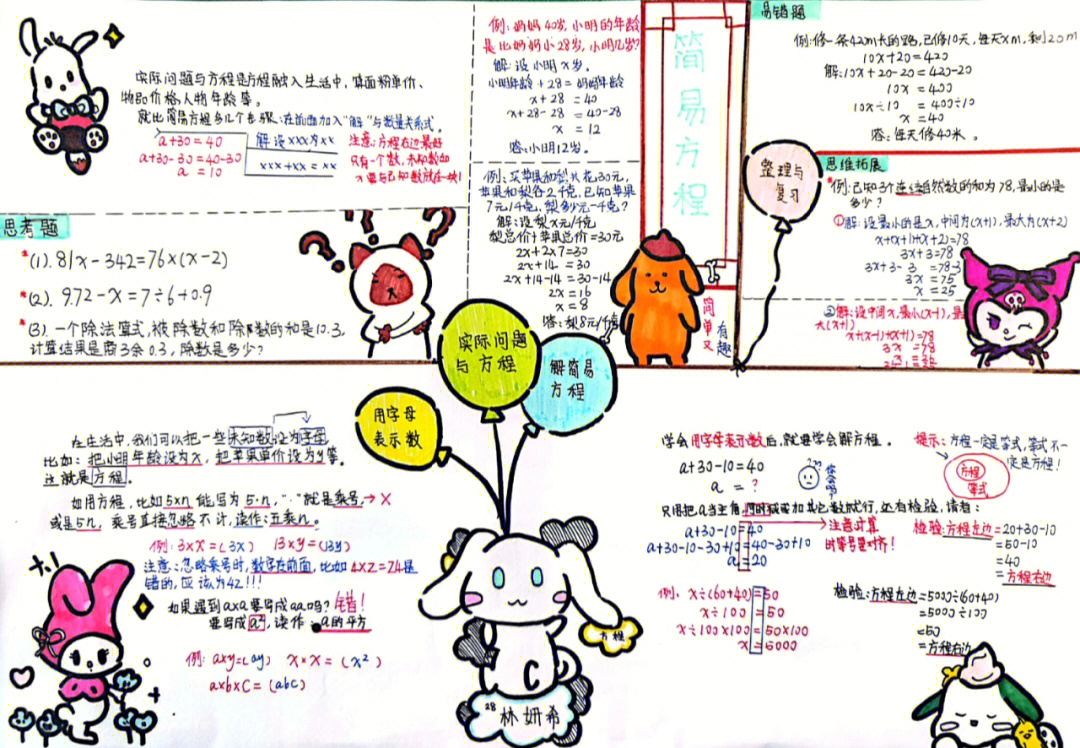 实际问题与方程是方程融入生活中,算面粉单价、
物品价格、人物年龄等。
就比简易方程多几个步骤:在前面加入"解"与数量关系式。
a+30=40
a+30-30=40-30
a=10
解设xxx为xx
xxx+xx=xx
注意:方程右边最好
只有一个数,未知数如
x要与已知数放在一块!
例:妈妈40岁,小明的年龄
是比妈妈小28岁,小明几岁?
解:设小明x岁。
小明年龄+28=妈妈年龄
x+28=40
x+28-28=40-28
x=12
答:小明12岁。
例:买苹果和梨共花30元,
苹果和梨各2千克,已知苹果
7元/千克,梨多少元一千克?
解:设梨x元/千克
梨总价+苹果总价=30元
2x+2×7=30
2x+14=30
2x+14-14=30-14
2x=16
x=8
答:梨8元/千克
简易方程
简单又有趣
易错题
例:修一条420m长的路,已修10天,每天xm,剩20m
10x+20=420
解:10x+20-20=420-20
10x=400
10x÷10=400÷10
x=40
答:每天修40米。
整理与
复习
思维拓展
*例:已知3个连续自然数的和为78,最小的是
多少?
①解:设最小的是x,中间为(x+1),最大为(x+2)
x+(x+1)+(x+2)=78
3x+3=78
3x+3-3=78-3
3x=75
x=25
②解:设中间x,最小(x-1),最
大(x+1)
x+(x-1)+(x+1)=78
3x=78
思考题
*(1).81x-342=76×(x-2)
*(2).9.72-x=7÷6+0.9
*(3).一个除法算式,被除数和除数的和是10.3,
计算结果是商3余0.3,除数是多少?
实际问题
与方程
解简易
方程
用字母
表示数
在生活中,我们可以把一些未知数设为字母
比如:把小明年龄设为x,把苹果单价设为y等。
这就是方程。
如用方程,比如5×n能写为5·n,"·"就是乘号,→×
或是5n,乘号直接忽略不计,读作:五乘n。
例:3×x=(3x) 13×y=(13y)
注意:忽略乘号时,数字在前面,比如4×Z=Z4是
错的,应该为4Z!!!
如果遇到a×a要写成aa吗?错!
要写成a²,读作:a的平方
例:a×y=(ay) x×x=(x²)
a×b×c=(abc)
方程
28
林妍希
学会用字母表示数后,就要学会解方程。
a+30-10=40
a=?
提示:方程一定是等式,等式不一
定是方程!
方程
等式
只用把a当主角,同时减或加其它数就行,还有检验,请看:
a+30-10=40
a+30-10-30+10=40-30+10
a=20
注意计算
时等号要对齐!
检验:方程左边=20+30-10
=50-10
=40
=方程右边
例:x÷(60+40)=50
x÷100=50
x÷100×100=50×100
x=5000
检验:方程左边=5000÷(60+40)
=5000÷100
=50
=方程右边